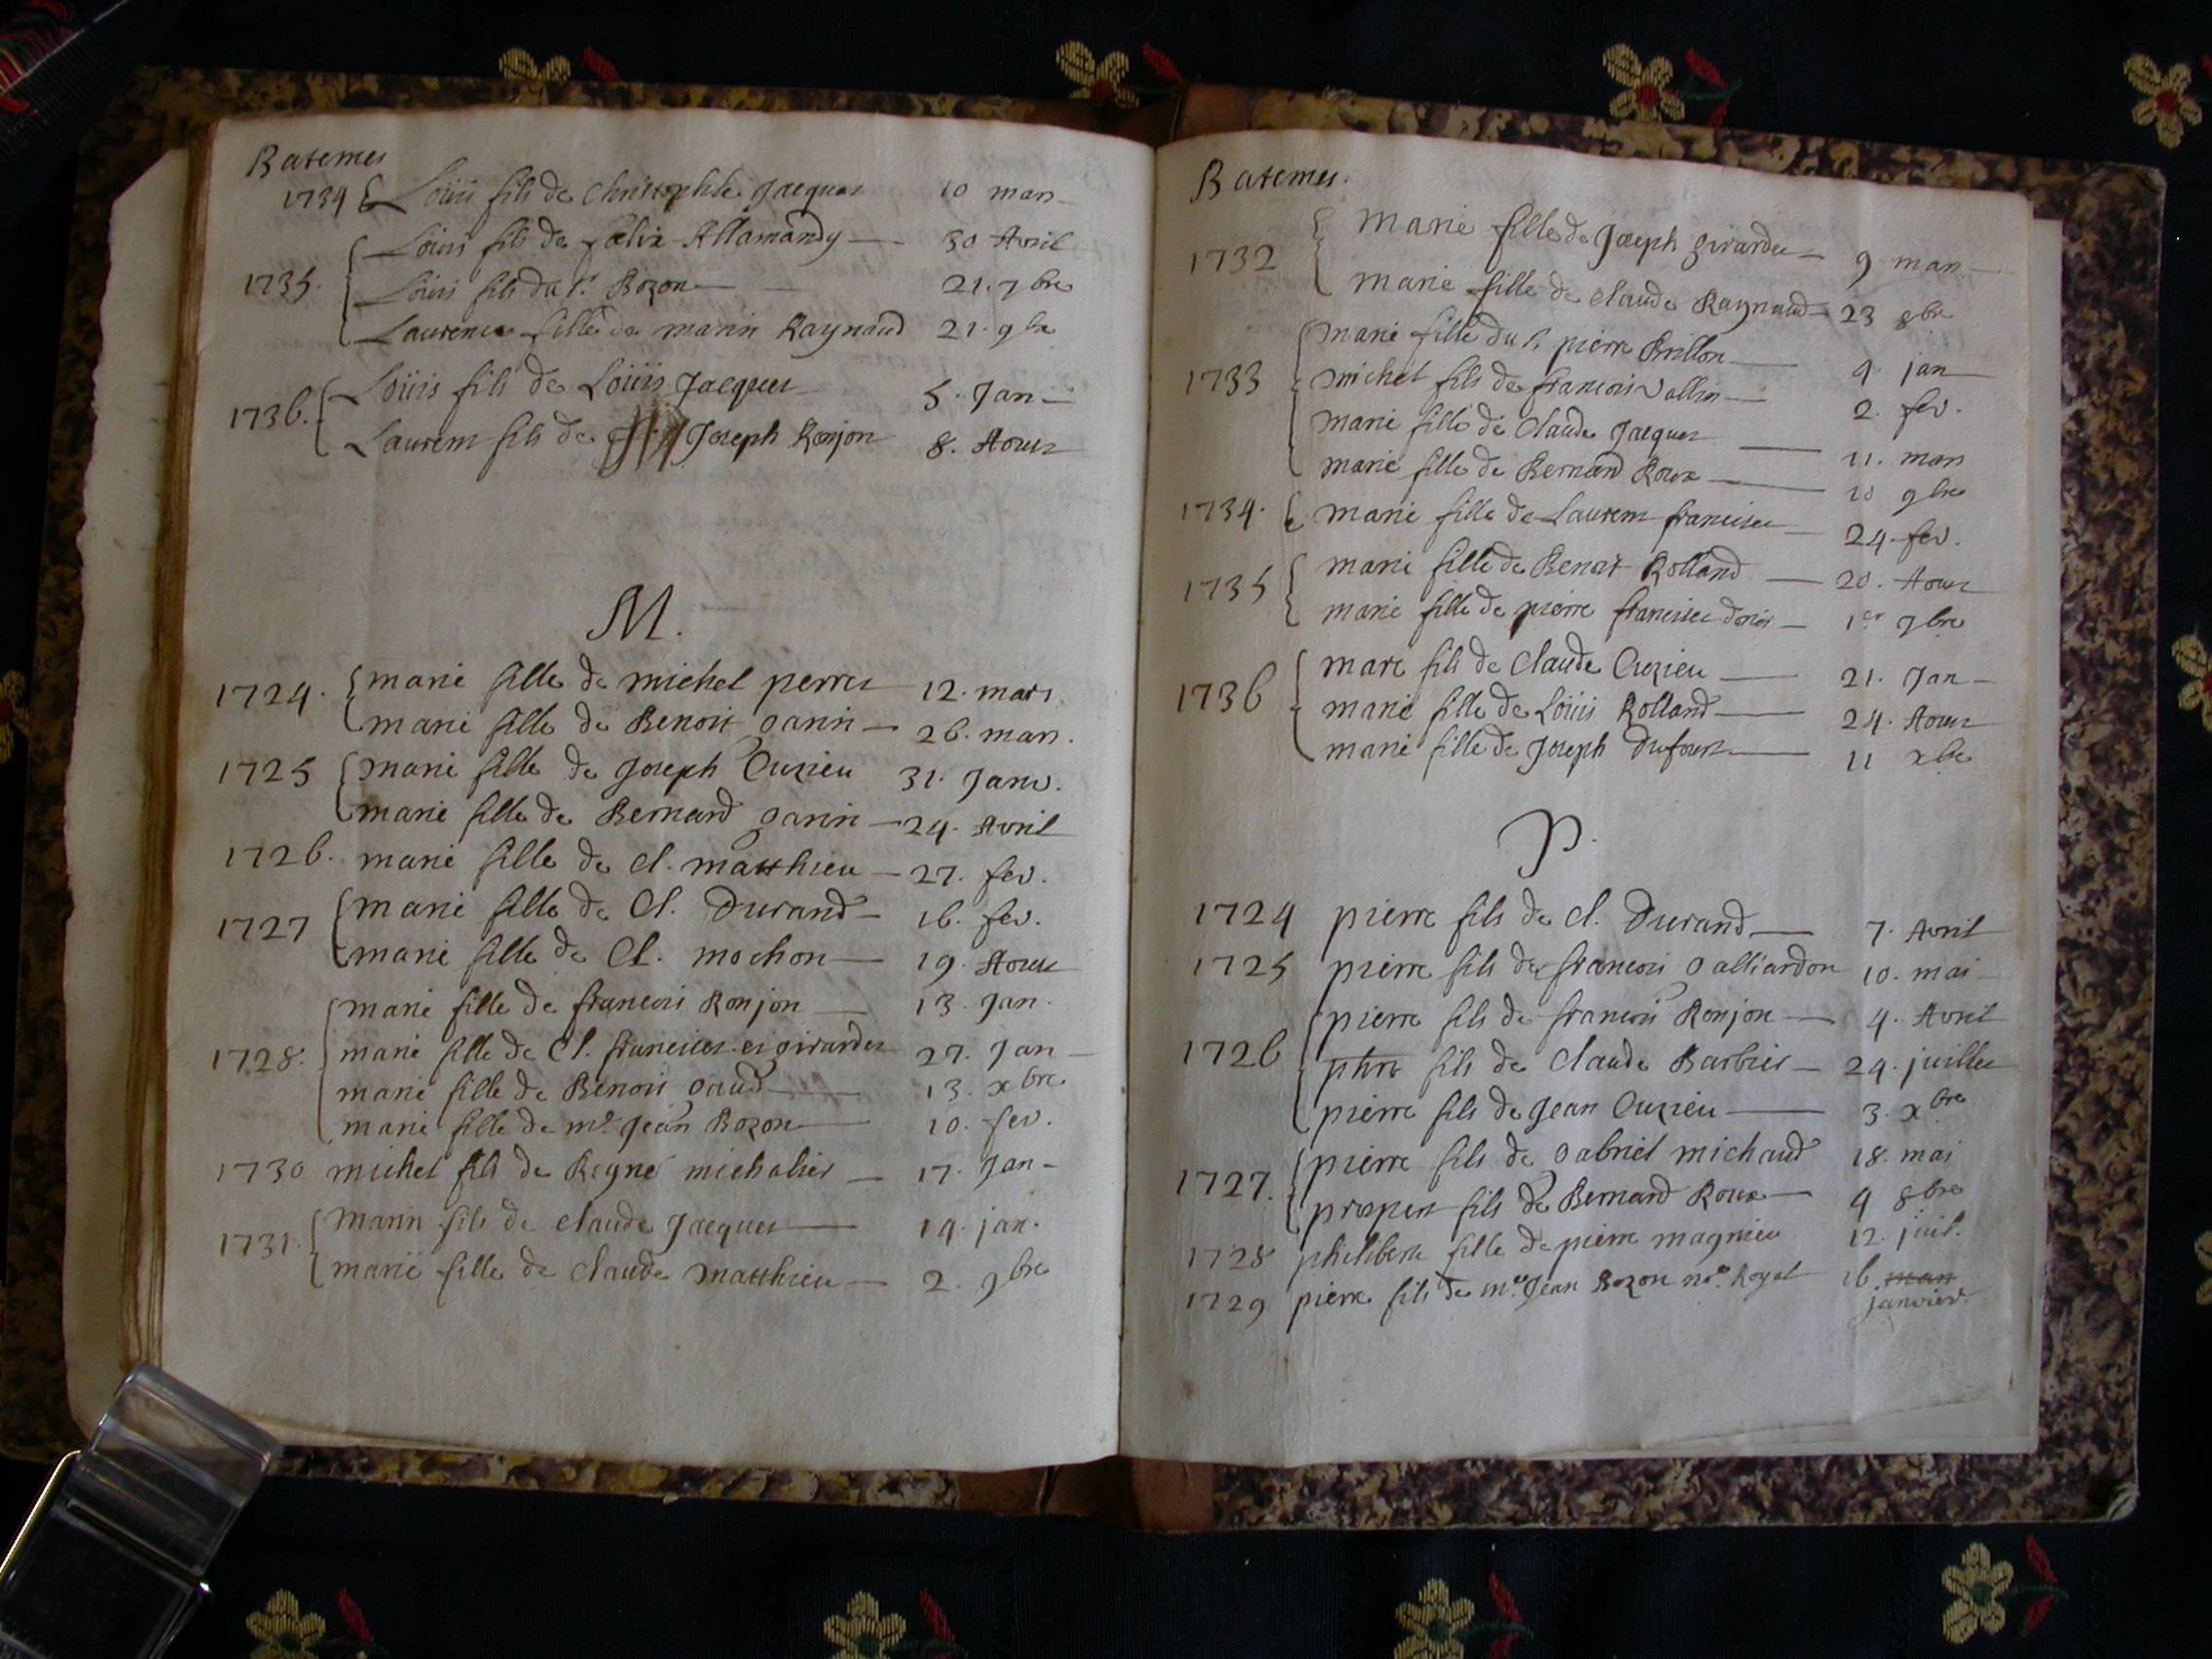 Batemes
1734 { Loüis fils de Christophle Jacquet 10 mars
Loüis fils de fœlix Allamandy 30 Avril
1735. Loüis fils du Sr. Bozon 21. 7bre
Laurence fille de marin Raynaud 21. 9bre
Loüis fils de Loüis Jacquet 5. Jan
1736. Laurent fils de Joseph Ronjon 8. Aoust
M.
1724. marie fille de michel perret 12. mars.
marie fille de Benoit garin 26. mars.
1725 marie fille de Joseph Cuzieu 31. Janv.
marie fille de Bernard garin 24. Avril
1726. marie fille de cl. matthieu 27. fev.
1727 marie fille de Cl. Durand 16. fev.
marie fille de Cl. mochon 19. Aoust
marie fille de francois Ronjon 13. Jan.
1728. marie fille de Cl. francisct et girardet 27. Jan
marie fille de Benoit gaud 13. xbre
marie fille de me. Jean Bozon 10. fev.
1730 michel fils de Reyné michalier 17. Jan
1731. Marin fils de claude Jacquet 14. jan.
marie fille de claude matthieu 2. 9bre
Batemes.
Marie fille de Joseph girardet 9 mars
1732 marie fille de claude Raynaud 23 8bre
marie fille du s. pierre Brillon 4. jan
1733 michel fils de francois vallin 2. fev.
marie fille de Claude Jacquet 11. mars
marie fille de Bernard Roux 10 9bre
1734. { marie fille de Laurent francisct 24. fev.
1735 marie fille de Benoit Rolland 20. Aoust
marie fille de pierre francisct 1er 7bre
marc fils de Claude Cuzieu 21. Jan
1736 marie fille de Loüis Rolland 24. Aoust
marie fille de Joseph Dufour 11 xbre
P.
1724 pierre fils de cl. Durand 7. Avril
1725 pierre fils de francois galliardon 10. mai
pierre fils de francois Ronjon 4. Avril
1726 phre fils de claude Barbier 24. juillet
pierre fils de Jean Cuzieu 3. xbre
1727. pierre fils de gabriel michaud 18. mai
prosper fils de Bernard Roux 9 8bre
1728 philiberte fille de pierre magnieu 12. juil.
1729 pierre fils de me. Jean Bozon nre. Royal 16 mars
janvier.